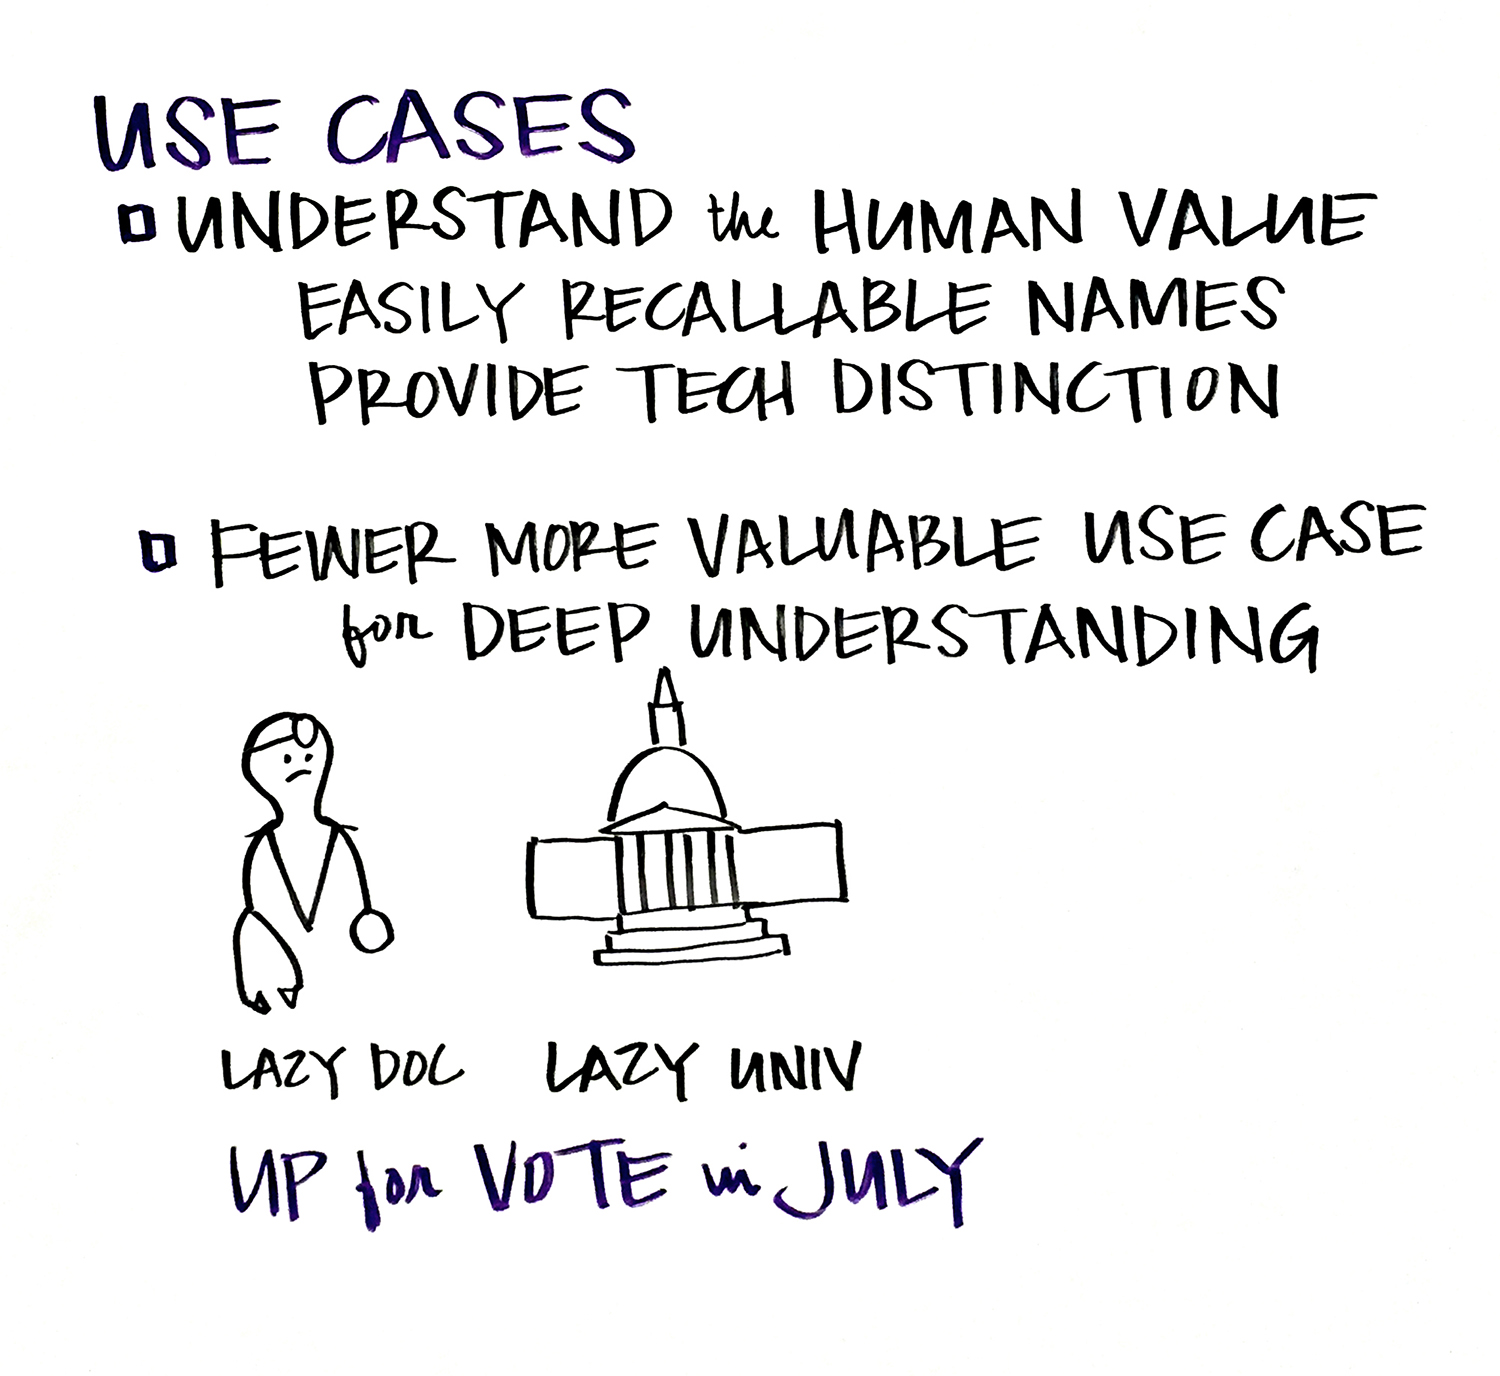 USE CASES
UNDERSTAND the HUMAN VALUE
EASILY RECALLABLE NAMES
PROVIDE TECH DISTINCTION
FEWER MORE VALUABLE USE CASE
for DEEP UNDERSTANDING
LAZY DOC LAZY UNIV
UP for VOTE in JULY